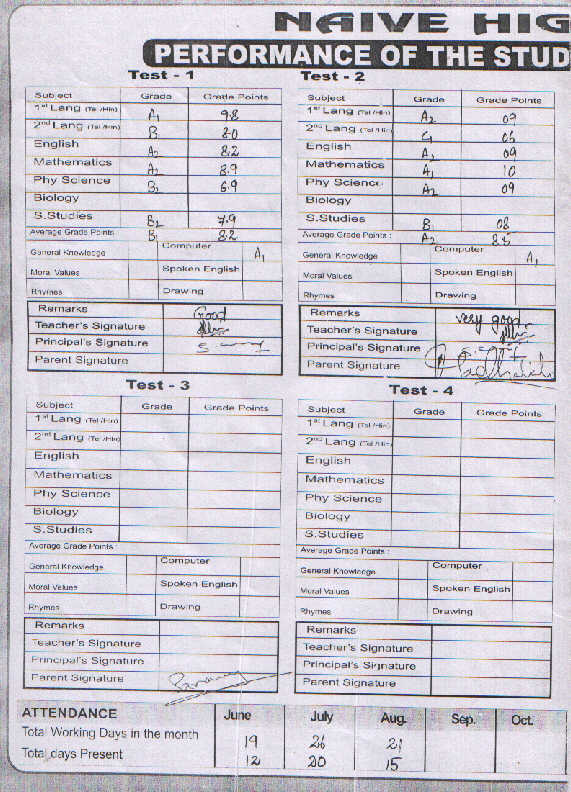 NAIVE HIG
PERFORMANCE OF THE STUD
Test - 1
Subject Grade Grade Points
1st Lang (Tel /Hin) A1 9.8
2nd Lang (Tel /Hin) B 8.0
English A2 8.2
Mathematics A2 8.9
Phy Science B2 6.9
Biology
S.Studies B2 7.9
Average Grade Points B1 8.2
General Knowledge Computer A1
Moral Values Spoken English
Rhymes Drawing
Remarks Good
Teacher's Signature
Principal's Signature
Parent Signature
Test - 2
Subject Grade Grade Points
1st Lang (Tel /Hin) A2 09
2nd Lang (Tel /Hin) C1 06
English A2 09
Mathematics A1 10
Phy Science A2 09
Biology
S.Studies B 08
Average Grade Points : A2 8.5
General Knowledge Computer A1
Moral Values Spoken English
Rhymes Drawing
Remarks very good
Teacher's Signature
Principal's Signature
Parent Signature
Test - 3
Subject Grade Grade Points
1st Lang (Tel /Hin)
2nd Lang (Tel /Hin)
English
Mathematics
Phy Science
Biology
S.Studies
Average Grade Points :
General Knowledge Computer
Moral Values Spoken English
Rhymes Drawing
Remarks
Teacher's Signature
Principal's Signature
Parent Signature
Test - 4
Subject Grade Grade Points
1st Lang (Tel /Hin)
2nd Lang (Tel /Hin)
English
Mathematics
Phy Science
Biology
S.Studies
Average Grade Points :
General Knowledge Computer
Moral Values Spoken English
Rhymes Drawing
Remarks
Teacher's Signature
Principal's Signature
Parent Signature
ATTENDANCE June July Aug. Sep. Oct.
Total Working Days in the month 19 26 21
Total days Present 12 20 15